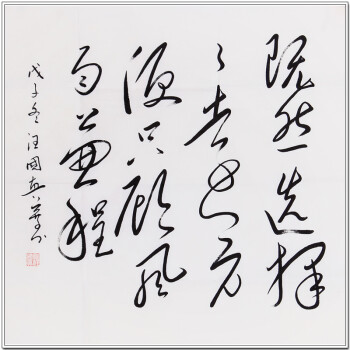 既然选择
了远方
便只顾风
雨兼程
戊子冬汪國真书